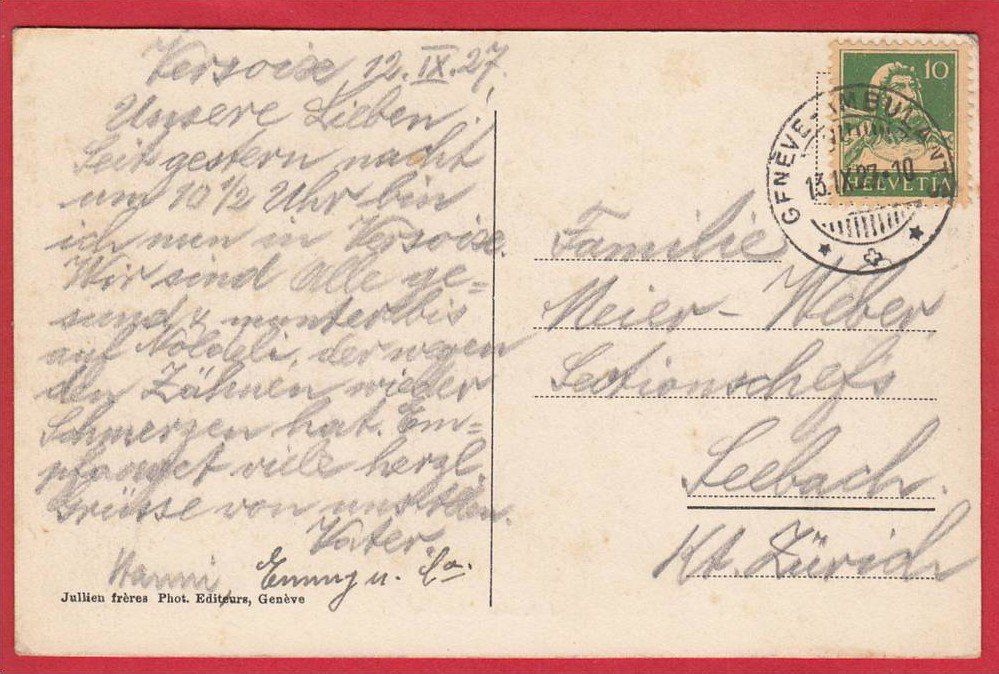 Versoix, 12.IX.27.
Unsere Lieben!
Seit gestern nacht
um 10 1/2 Uhr bin
ich nun in Versoix.
Wir sind Alle ge=
sund & munter bis
auf, der wegen
den Zähnen wieder
Schmerzen hat. Em=
pfanget viele herzl.
Grüsse von uns Allen.
Vater.
Hanni, Emmy u.
Jullien frères Phot. Editeurs, Genève
10
HELVETIA
GENÈVE-AMBULANT
13.IX.27-10
Familie
Meier-Weber
Sectionschefs
Seebach.
Kt. Zürich